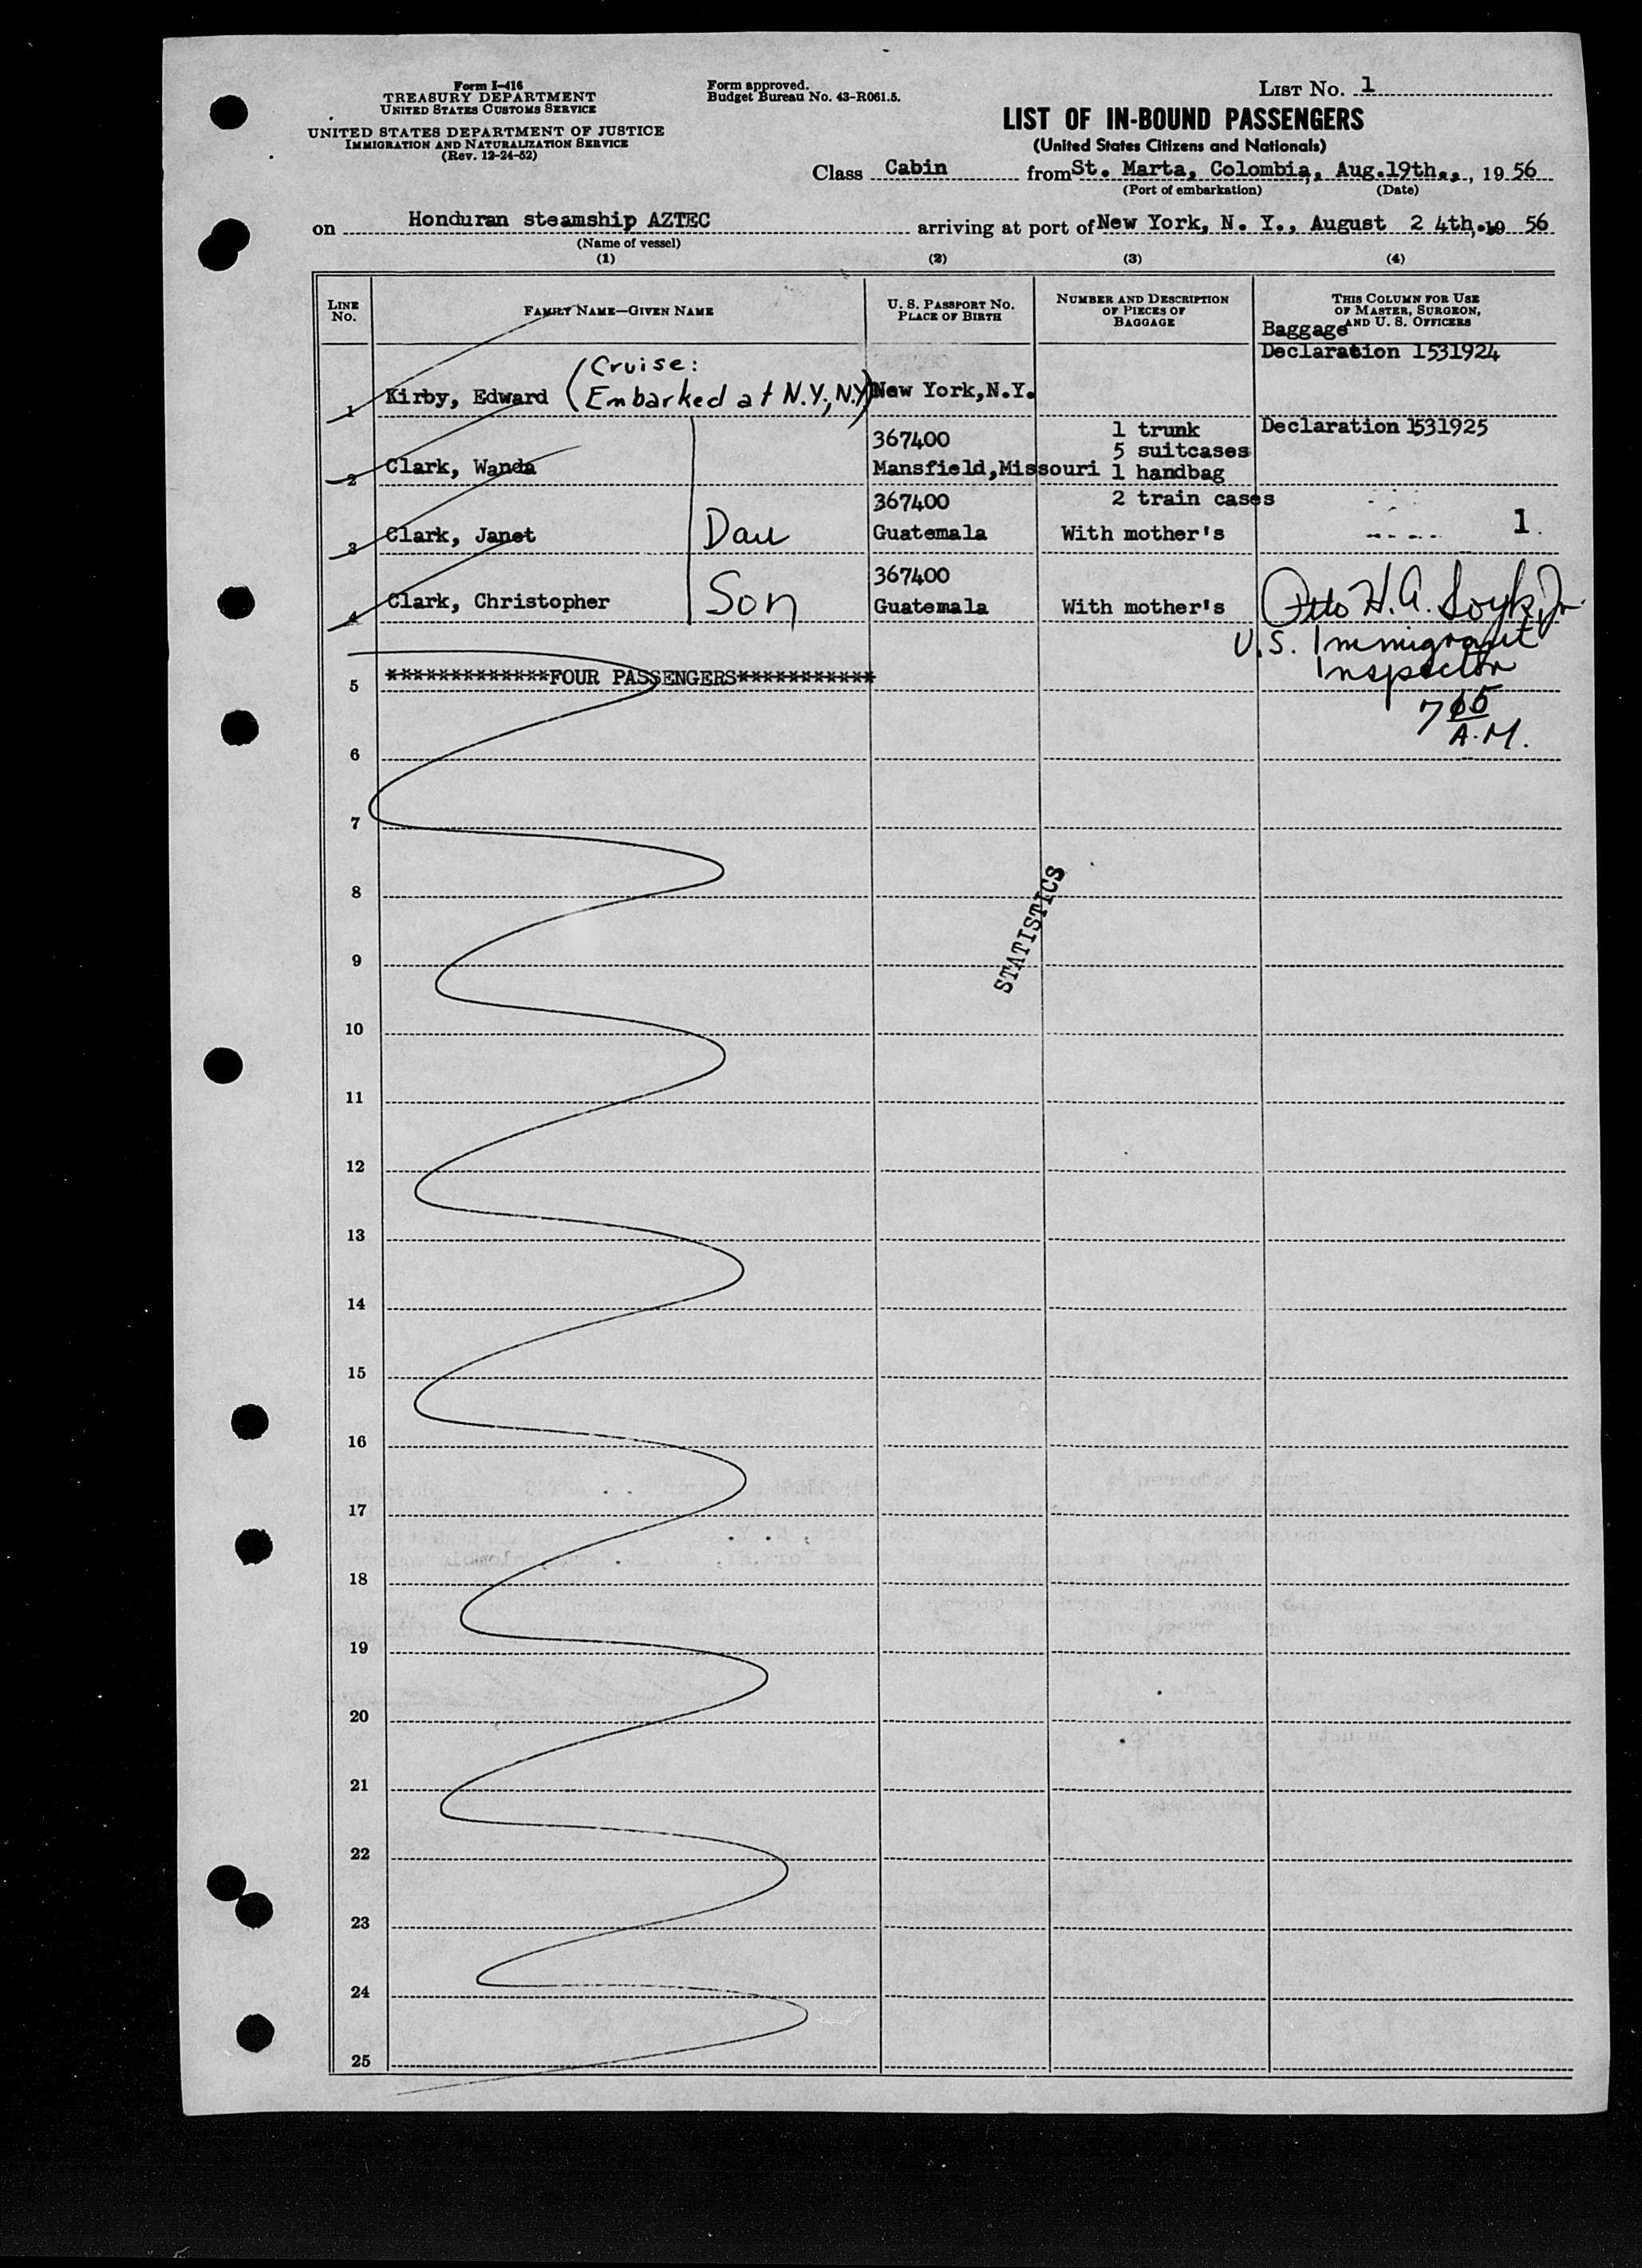 Form I-416
TREASURY DEPARTMENT
UNITED STATES CUSTOMS SERVICE
UNITED STATES DEPARTMENT OF JUSTICE
IMMIGRATION AND NATURALIZATION SERVICE
(Rev. 12-24-52)
Form approved.
Budget Bureau No. 43-R061.5.
LIST NO. 1
LIST OF IN-BOUND PASSENGERS
(United States Citizens and Nationals)
Class Cabin from St. Marta, Colombia, Aug.19th., , 19 56
(Port of embarkation) (Date)
on Honduran steamship AZTEC arriving at port of New York, N. Y., August 2 4th, 19 56
(Name of vessel)
(1) (2) (3) (4)
LINE NO.
FAMILY NAME—GIVEN NAME
U. S. PASSPORT NO.
PLACE OF BIRTH
NUMBER AND DESCRIPTION
OF PIECES OF
BAGGAGE
THIS COLUMN FOR USE
OF MASTER, SURGEON,
AND U. S. OFFICERS
Baggage
Declaration 1531924
(Cruise:
1 Kirby, Edward (Embarked at N.Y., N.Y.) New York,N.Y.
367400 1 trunk Declaration 1531925
5 suitcases
2 Clark, Wanda Mansfield,Missouri 1 handbag
367400 2 train cases
3 Clark, Janet Dau Guatemala With mother's 1.
367400
4 Clark, Christopher Son Guatemala With mother's Otto H. A. Soyk, Jr.
U.S. Immigrant
Inspector
5 *************FOUR PASSENGERS***********
7 05
A.M.
6
7
8
STATISTICS
9
10
11
12
13
14
15
16
17
18
19
20
21
22
23
24
25